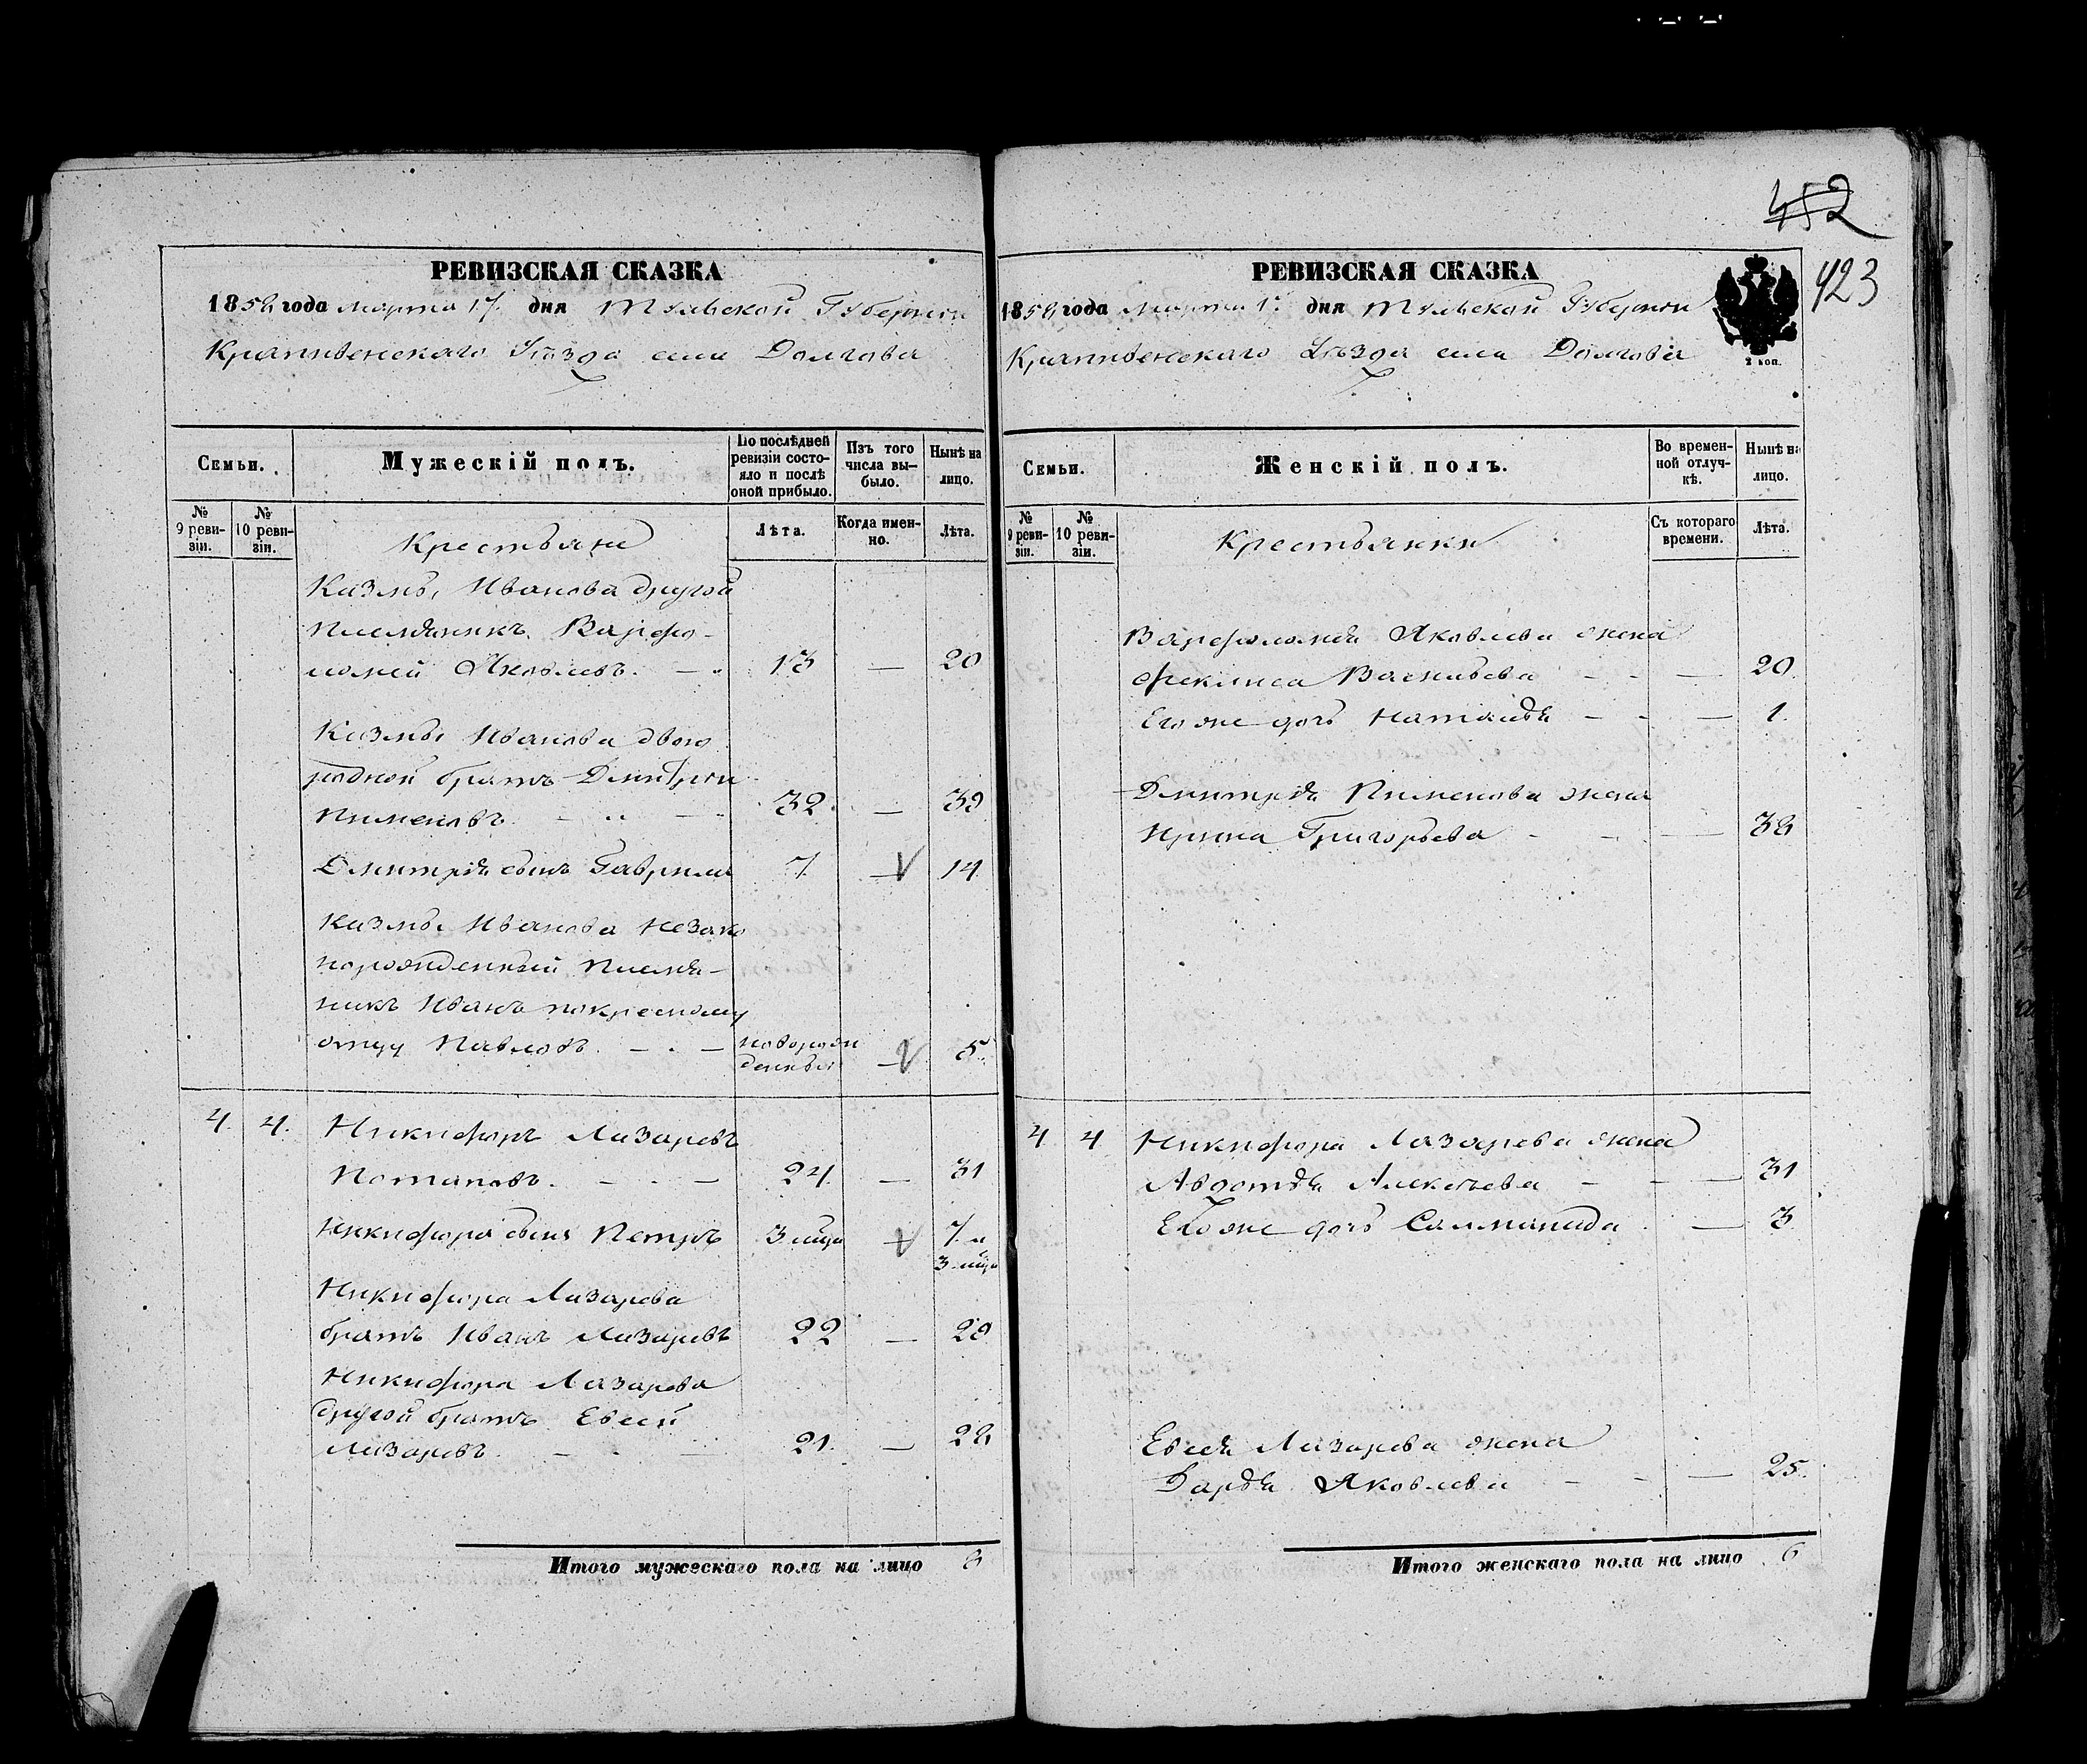 452
423
РЕВИЗСКАЯ СКАЗКА
1858 года марта 17 дня Тульской Губернии
Крапивенскаго Уѣзда села Долгова
Семьи.
Мужескій полъ.
По послѣдней ревизіи состояло и послѣ оной прибыло.
Изъ того числа выбыло.
Нынѣ на лицо.
№ 9 ревизіи.
№ 10 ревизіи.
Крестьяне
Лѣта.
Когда именно.
Лѣта.
Казмы Иванова другой
племянникъ Варфо-
ломей Яковлевъ. 13 — 20
Казмы Иванова двою
родной братъ Дмитрий
Пименовъ 32. — 39
Дмитрія сынъ Гаврила 7 — 14
Казмы Иванова незако
норожденный племя-
никъ Иванъ покрестному
отцу Павловъ. — новорож
денный — 5.
4. 4. Никифоръ Лазаревъ
Потаповъ. 24 — 31
Никифора сынъ Петръ 3 мѣца — 7 и
3 мѣца
Никифора Лазарева
братъ Иванъ Лазаревъ 22 — 29
Никифора Лазарева
другой братъ Евсей
Лазаревъ. 21. — 28
Итого мужескаго пола на лицо 8
РЕВИЗСКАЯ СКАЗКА
1858 года Марта 17 дня Тульской Губернии
Крапивенскаго Уѣзда села Долгова
2 коп.
Семьи.
Женскій полъ.
Во временной отлучкѣ.
Нынѣ на лицо.
№ 9 ревизіи.
№ 10 ревизіи.
Крестьянки
Съ котораго времени.
Лѣта.
Варфоломея Яковлева жена
Фекласа Васильева — 20.
Его же дочь Наталья — 1.
Дмитрія Пименова жена
Ирина Григорьева — 38
4 4 Никифора Лазарева жена
Авдотья Алексѣева — 31
Его же дочь Саламанида — 3
Евсея Лазарева жена
Дарья Яковлева — 25.
Итого женскаго пола на лицо 6